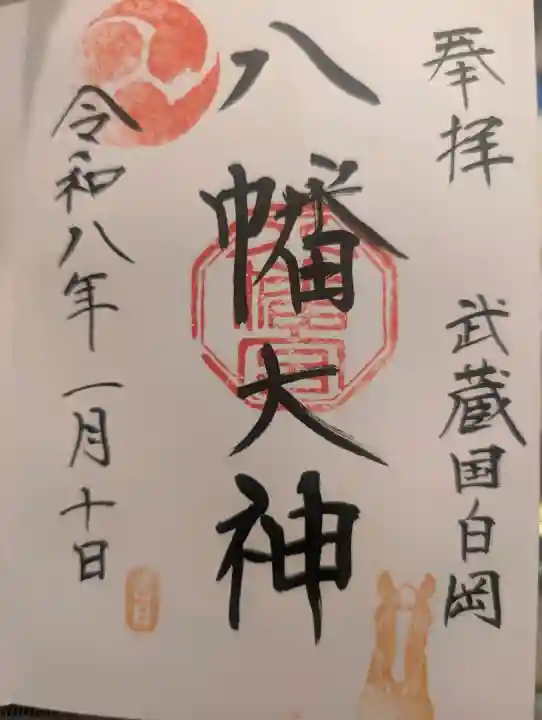 奉拝 武蔵国白岡
八幡大神
令和八年一月十日